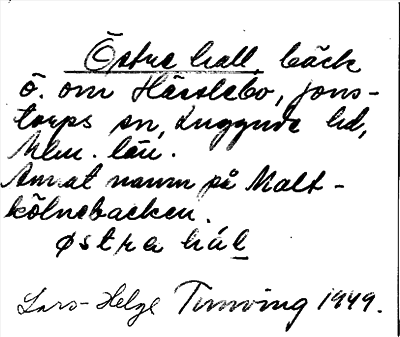 Östre hall bäck
ö. om Hässlebo, Jons-
torps sn, Luggude hd,
Mlm. län.
Annat namn på Malt-
kölnebacken.
østra hál
Lars-Helge Turnving 1949.